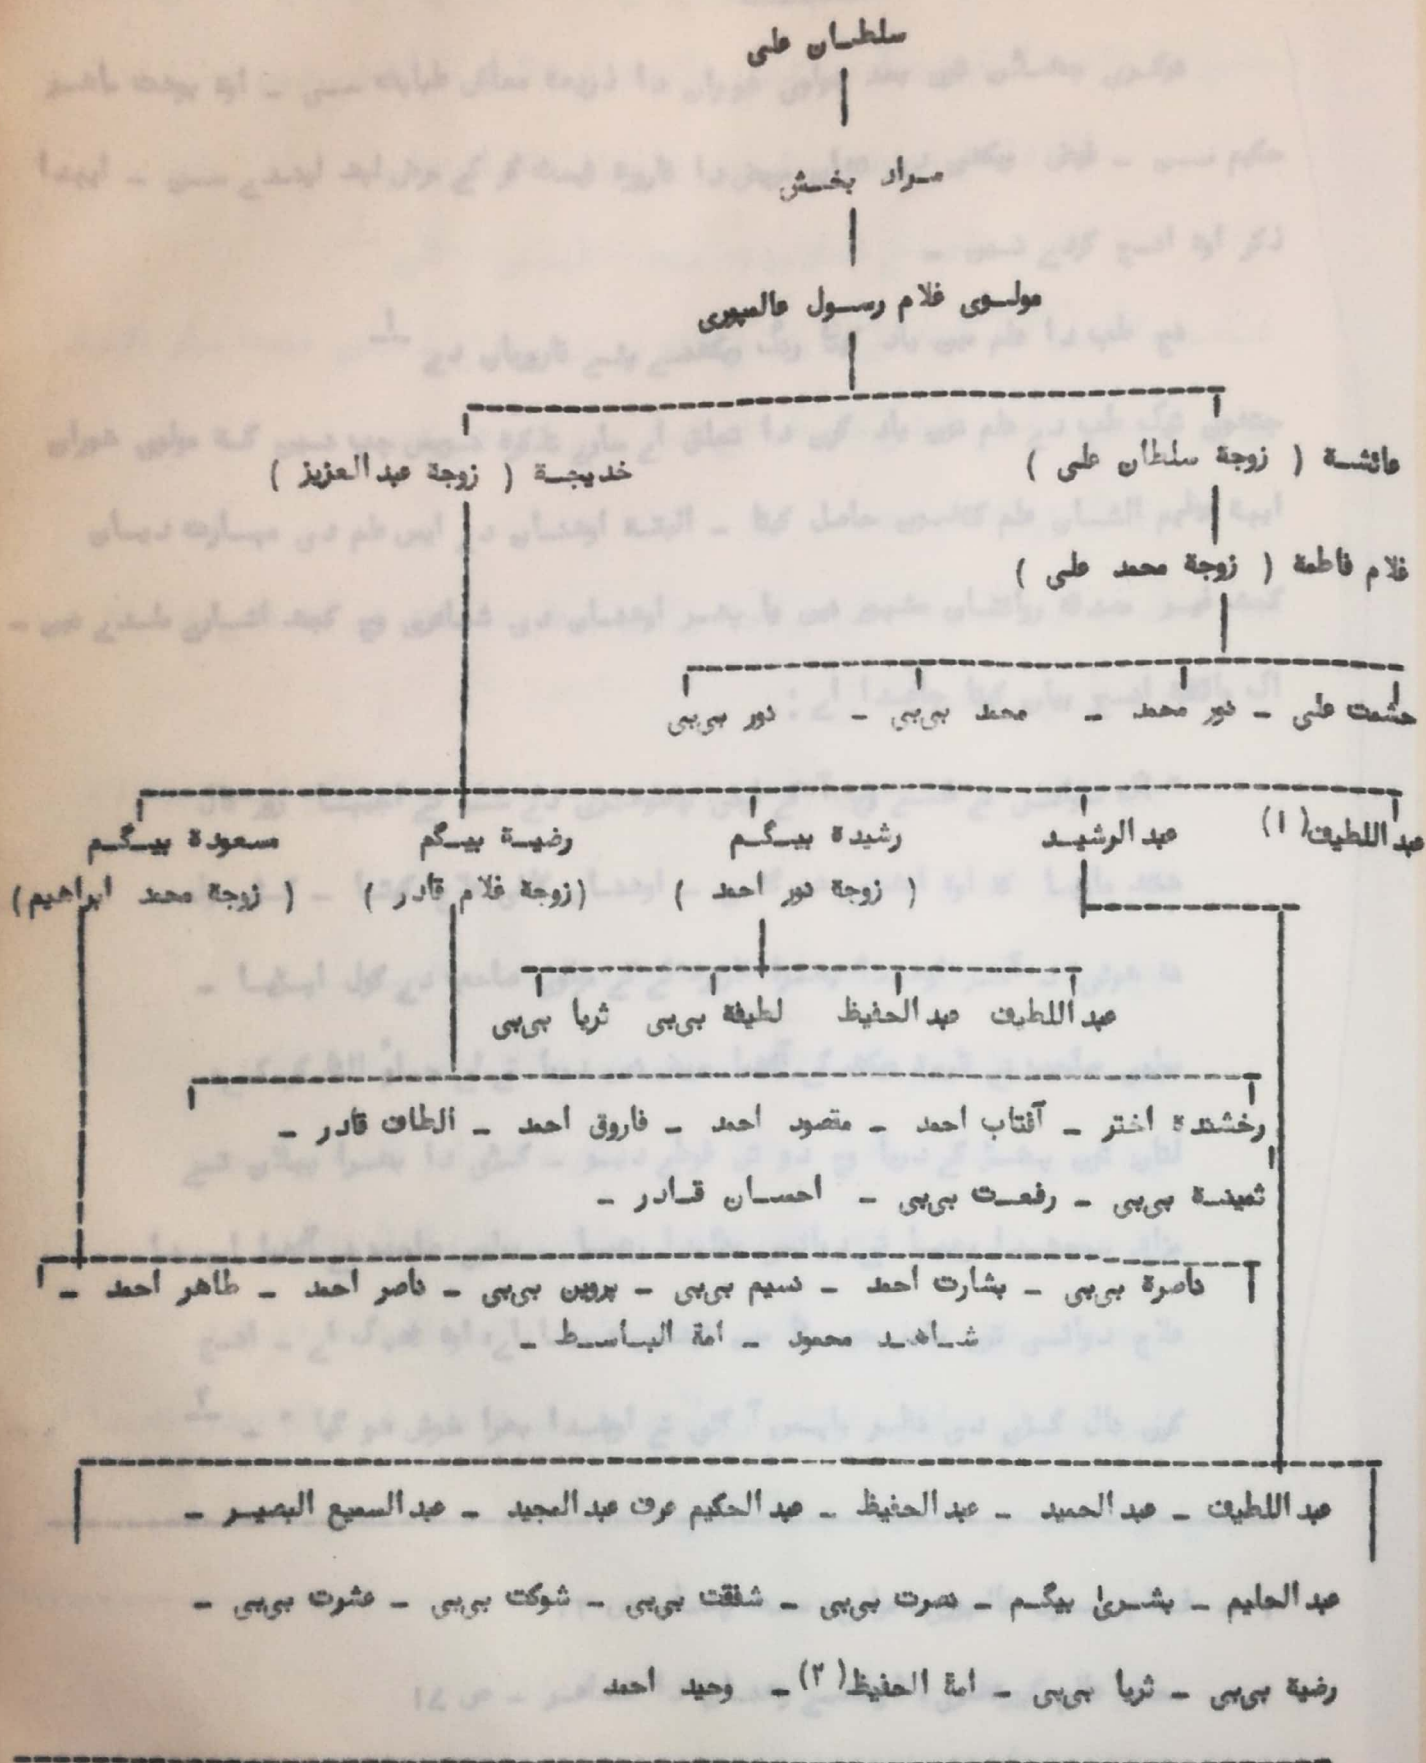 سلطان علی
مراد بخش
مولوی غلام رسول عالمپوری
عائشة ( زوجة سلطان علی ) خدیجة ( زوجة عبد العزیز )
غلام فاطمة ( زوجة محمد علی )
حشمت علی - نور محمد - محمد بی‌بی - نور بی‌بی
عبد اللطیف (۱) عبد الرشید رشیدة بیگم رضیة بیگم مسعودة بیگم
( زوجة نور احمد ) (زوجة غلام قادر ) ( زوجة محمد ابراهیم)
عبد اللطیف عبد الحفیظ لطیفة بی‌بی ثریا بی‌بی
رخشندة اختر - آفتاب احمد - مقصود احمد - فاروق احمد - الطاف قادر -
ثمینة بی‌بی - رفعت بی‌بی - احسان قادر -
ناصرة بی‌بی - بشارت احمد - نسیم بی‌بی - پروین بی‌بی - ناصر احمد - طاهر احمد -
شاهد محمود - امة الباسط -
عبد اللطیف - عبد الحمید - عبد الحفیظ - عبد الحکیم عرف عبد المجید - عبد السمیع البصیر -
عبد الحلیم - بشریٰ بیگم - نصرت بی‌بی - شفقت بی‌بی - شوکت بی‌بی - عشرت بی‌بی -
رضیة بی‌بی - ثریا بی‌بی - امة الحفیظ(۲) - وحید احمد